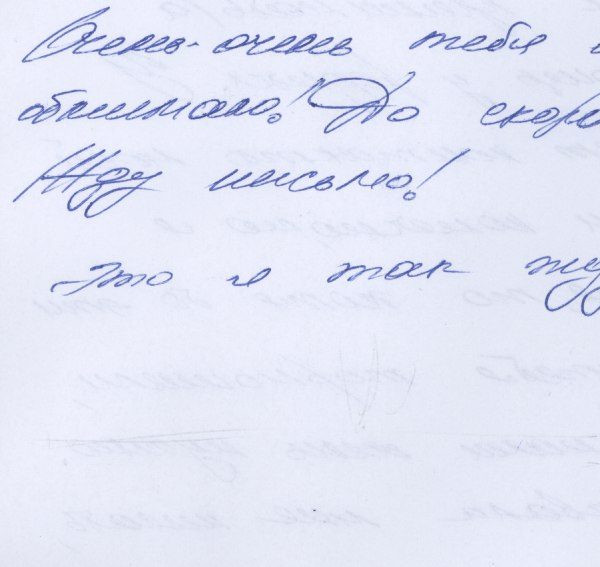 Очень-очень тебя
обнимаю! До скоро
Жду письмо!
Это я так жду